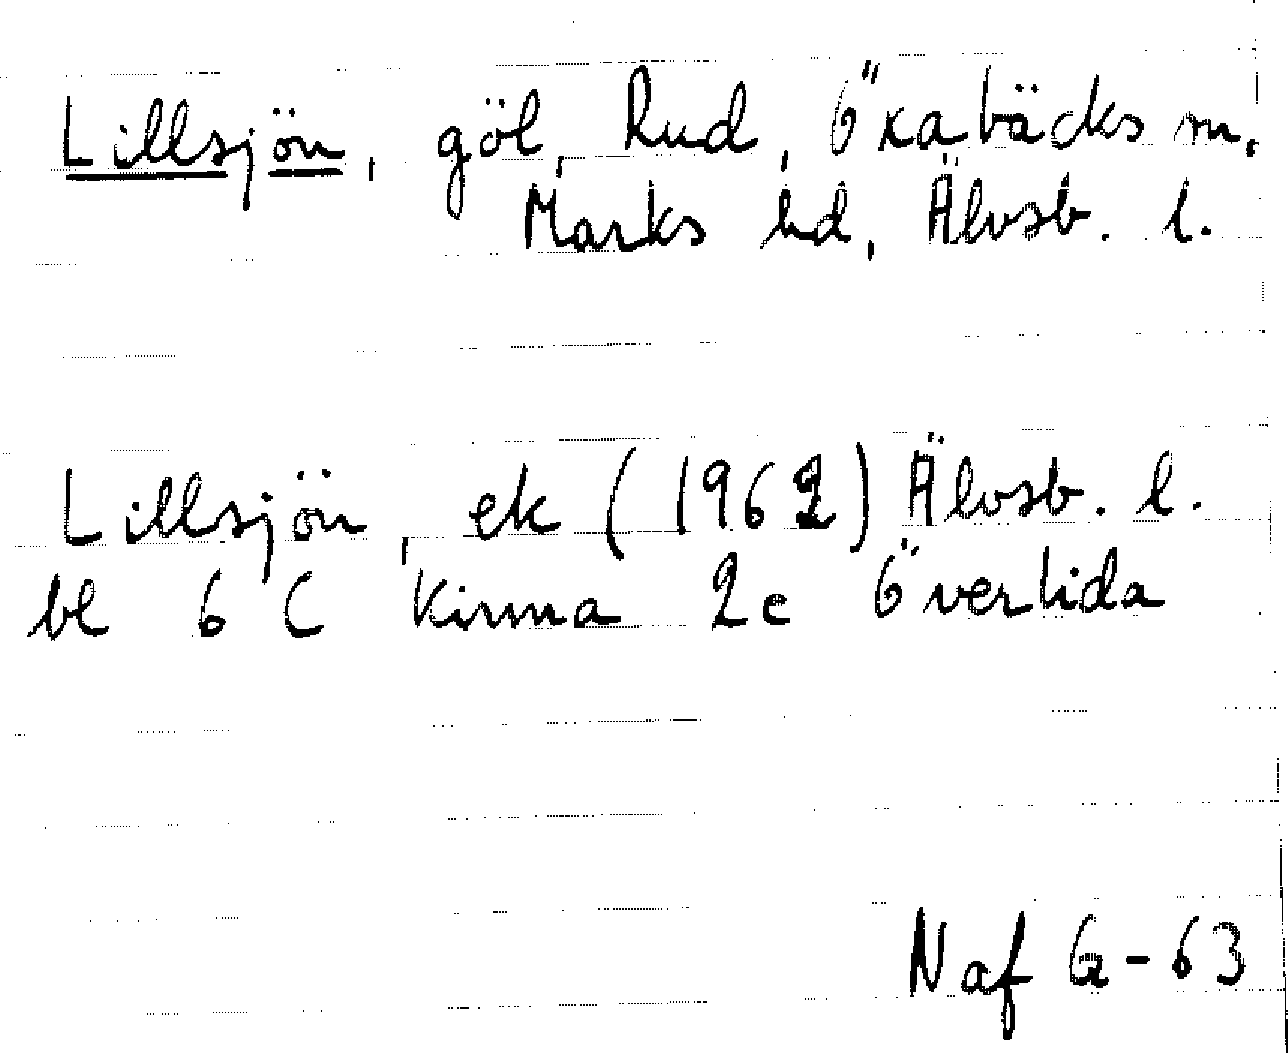 Lillsjön, göl, Rud, Öxabäcks sn,
Marks hd, Älvsb. l.
Lillsjön, ek (1962) Älvsb. l.
bl 6 C Kinna 2c Överlida
Naf G-63